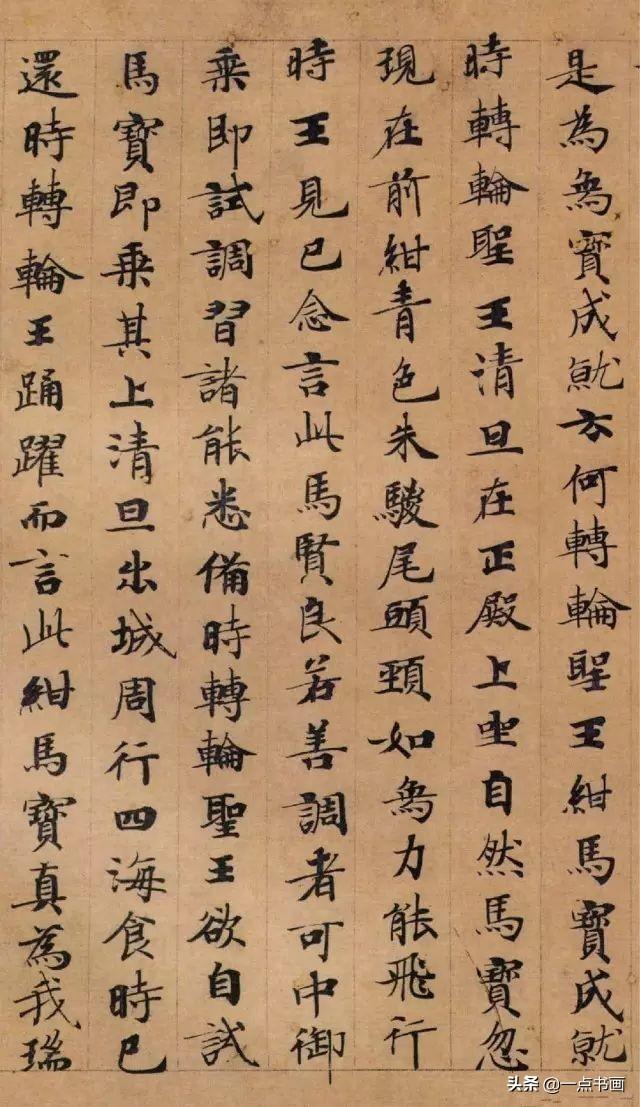 是為象寶成就云何轉輪聖王紺馬寶成就
時轉輪聖王清旦在正殿上坐自然馬寶忽
現在前紺青色朱騣尾頭頸如象力能飛行
時王見已念言此馬賢良若善調者可中御
乘即試調習諸能悉備時轉輪聖王欲自試
馬寶即乘其上清旦出城周行四海食時已
還時轉輪王踊躍而言此紺馬寶真為我瑞
头条 @一点书画